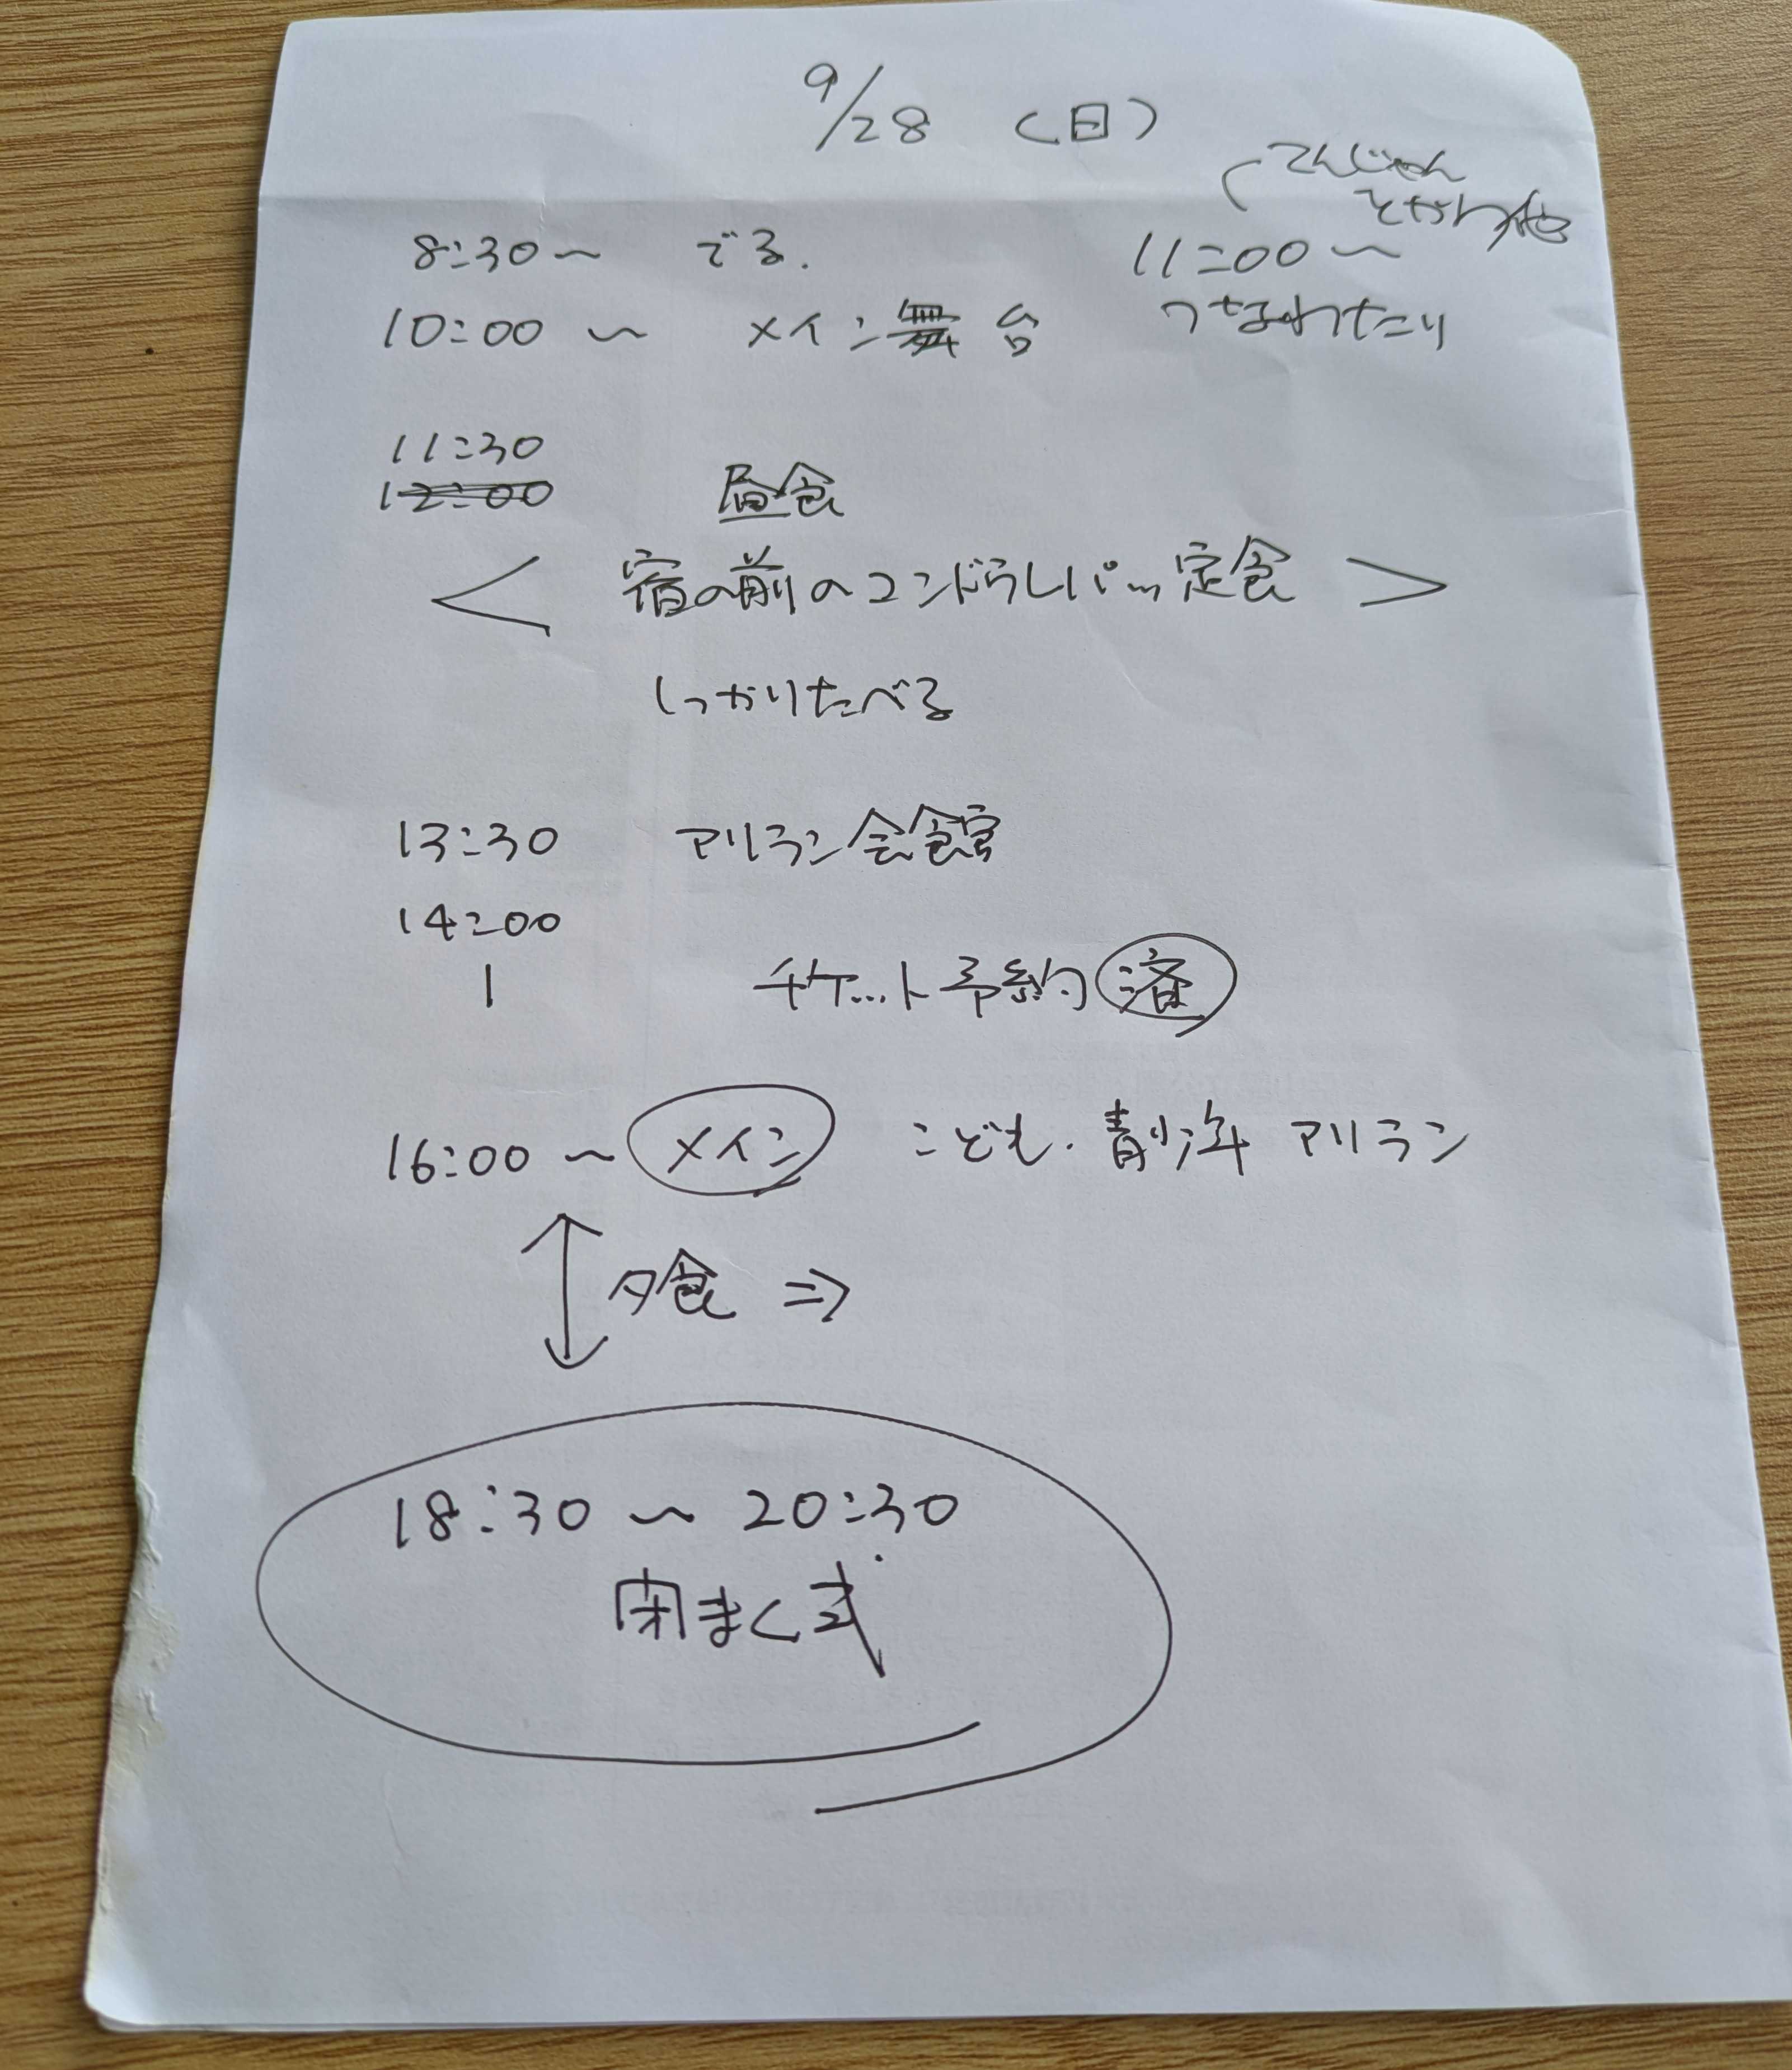 9/28 (日)
8:30〜 でる.
10:00〜 メイン舞台
11:00〜
11:30
12:00
昼食
< 宿の前のコンドゥレパッ定食 >
しっかりたべる
13:30 アリラン会館
14:00
|
チケット予約 済
16:00〜 メイン こども・青少年 アリラン
↕ 夕食 ⇒
18:30〜20:30
閉まく式